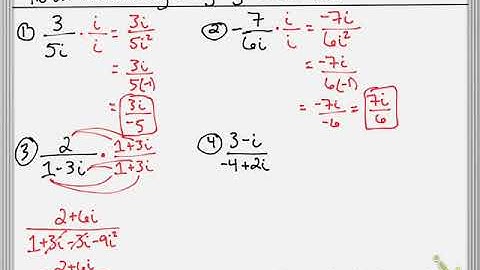 ① 3/5i · i/i = 3i/5i²
= 3i/5(-1)
= 3i/-5
② -7/6i · i/i = -7i/6i²
= -7i/6(-1)
= -7i/-6 = 7i/6
③ 2/1-3i · 1+3i/1+3i
2+6i/1+3i-3i-9i²
2+6i
④ 3-i/-4+2i